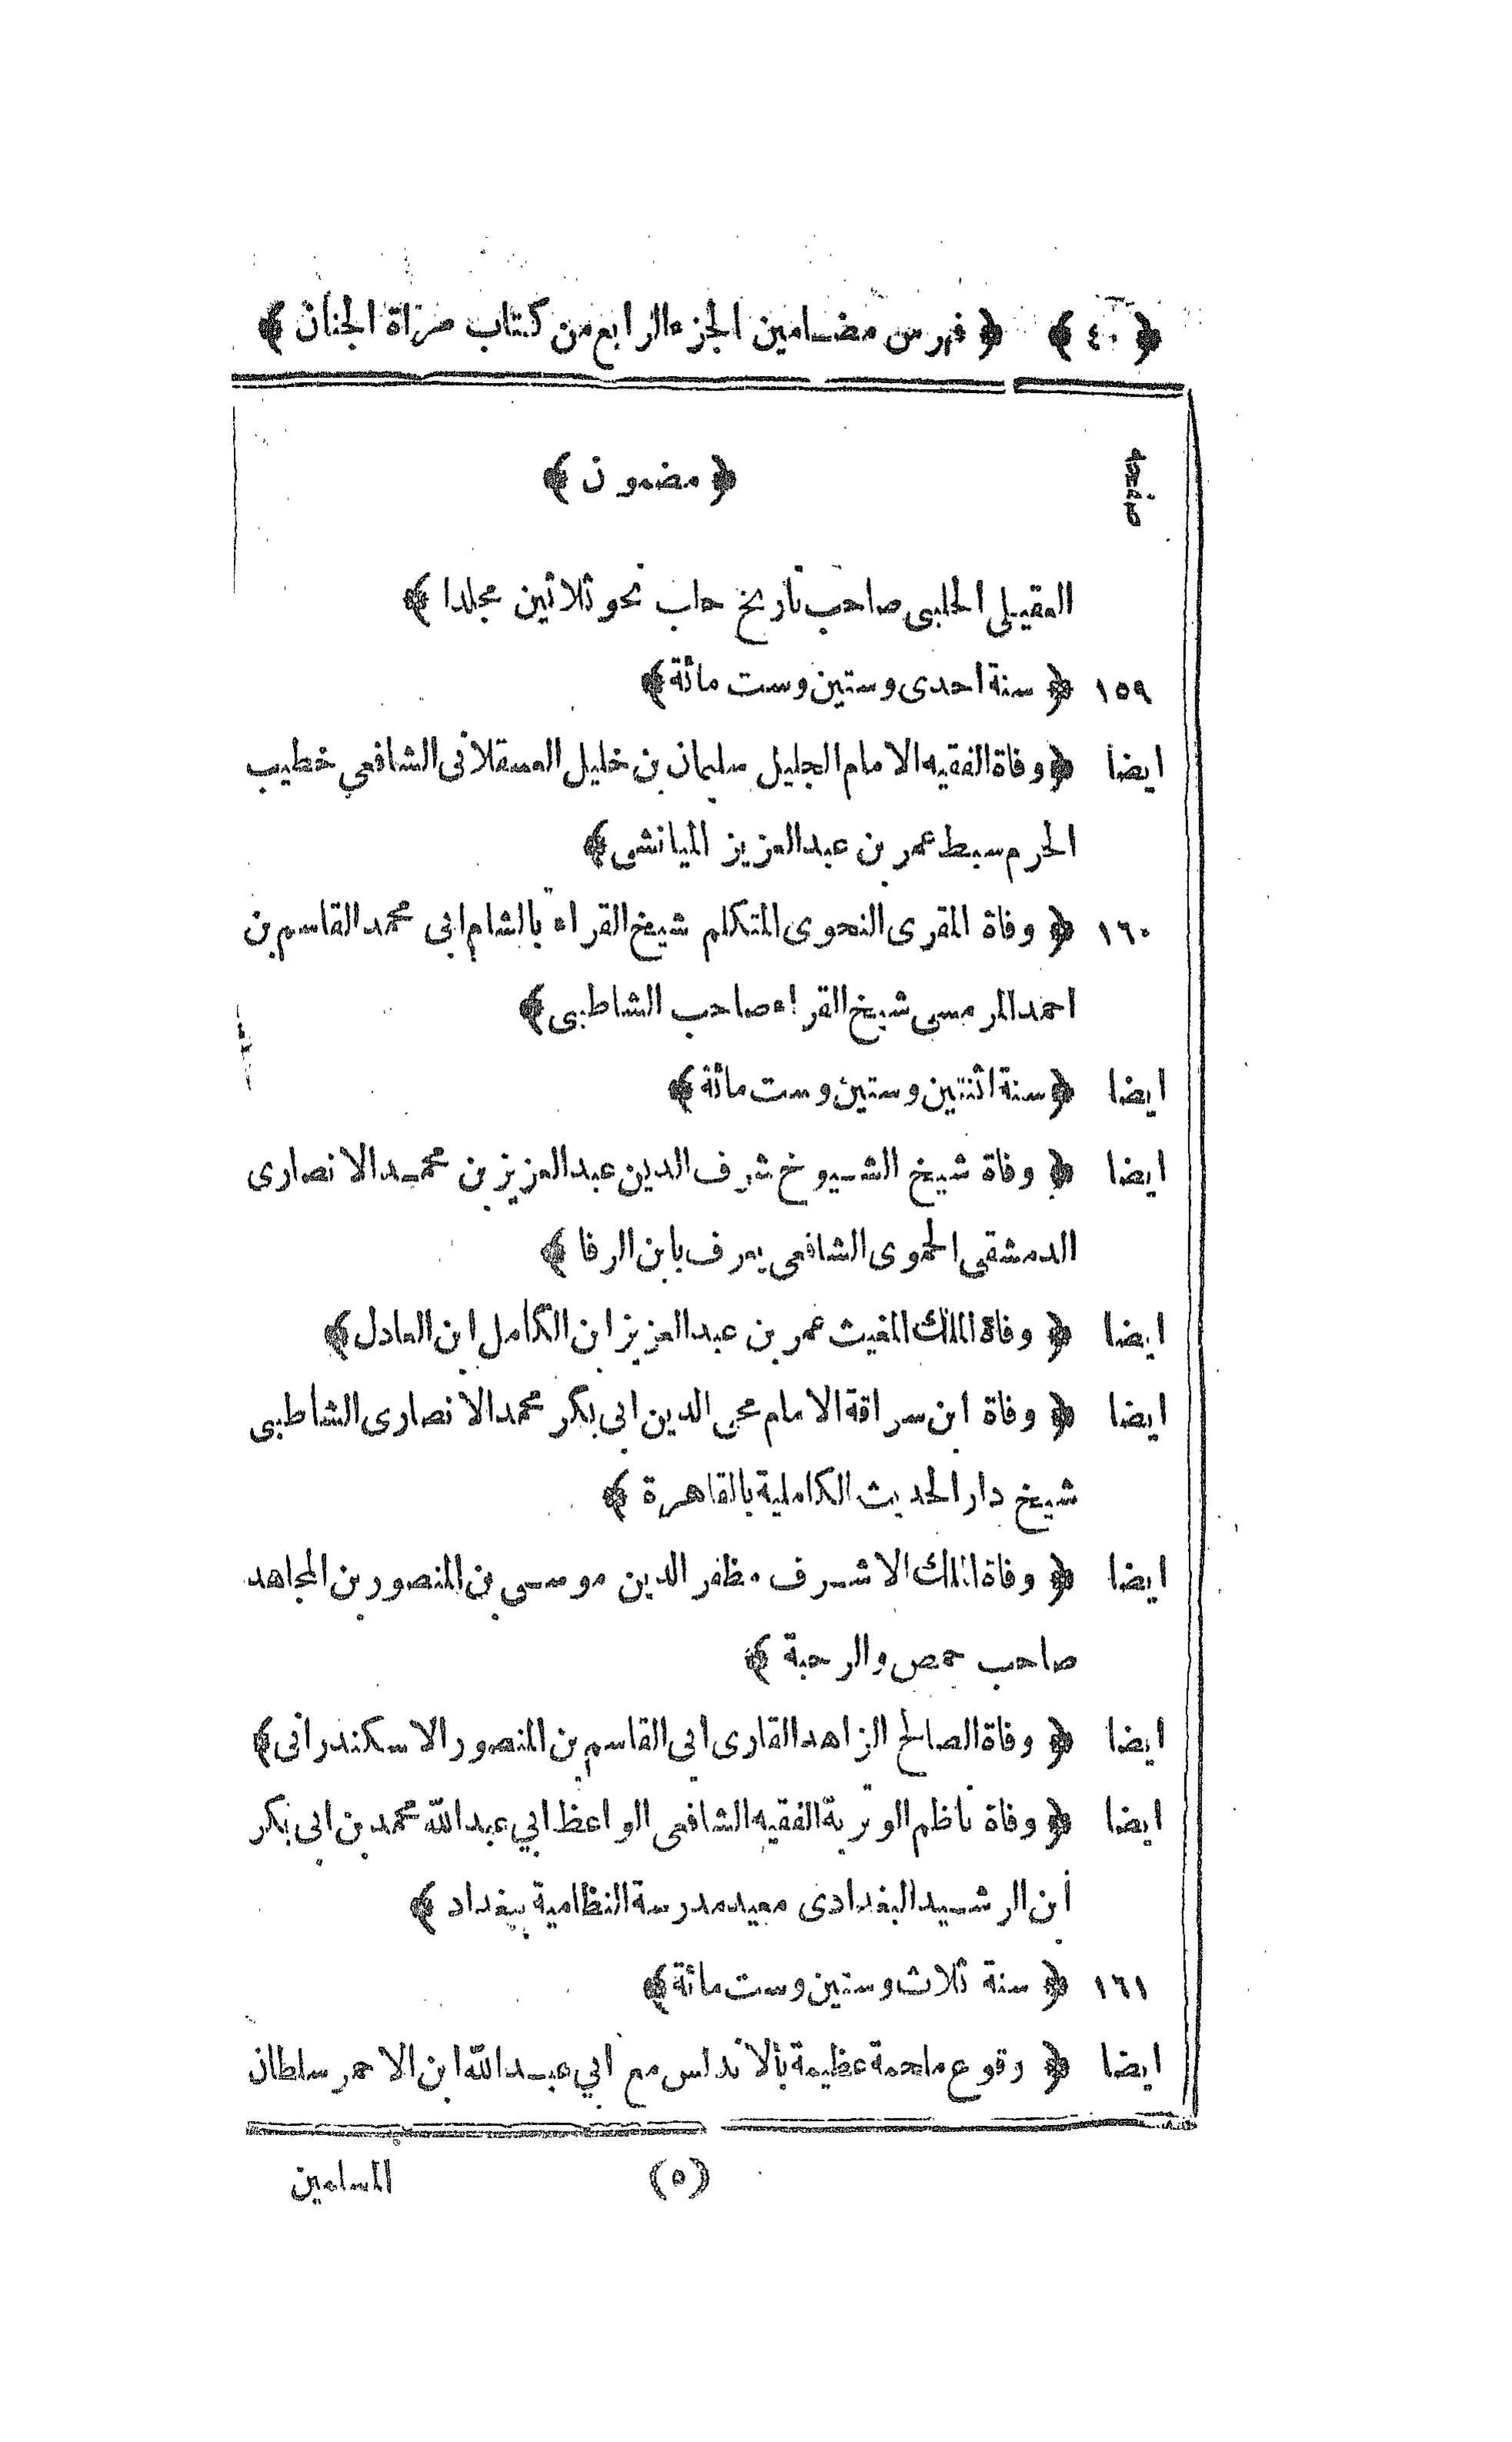 ﴿ ٤٠ ﴾ ﴿ فهرس مضامين الجزء الرابع من كتاب مرآة الجنان ﴾
صفحه ﴿ مضمون ﴾
العقيلى الحلبى صاحب تاريخ حلب نحو ثلاثين مجلدا ﴾
١٥٩ ﴿ سنة احدى وستين وست مائة ﴾
ايضا ﴿ وفاة الفقيه الامام الجليل سليمان بن خليل العسقلانى الشافعي خطيب
الحرم سبط عمر بن عبدالعزيز الميانشى ﴾
١٦٠ ﴿ وفاة المقرى النحوى المتكلم شيخ القراء بالشام ابى محمد القاسم بن
احمد المرسى شيخ القراء صاحب الشاطبى ﴾
ايضا ﴿ سنة اثنتين وستين وست مائة ﴾
ايضا ﴿ وفاة شيخ الشيوخ شرف الدين عبدالعزيز بن محمد الانصارى
الدمشقى الحموى الشافعى يعرف بابن الرفا ﴾
ايضا ﴿ وفاة الملك المغيث عمر بن عبدالعزيز ابن الكامل ابن العادل ﴾
ايضا ﴿ وفاة ابن سراقة الامام محى الدين ابى بكر محمد الانصارى الشاطبى
شيخ دار الحديث الكاملية بالقاهرة ﴾
ايضا ﴿ وفاة الملك الاشرف مظفر الدين موسى بن المنصور بن المجاهد
صاحب حمص والرحبة ﴾
ايضا ﴿ وفاة الصالح الزاهد القارى ابى القاسم بن المنصور الاسكندرانى ﴾
ايضا ﴿ وفاة ناظم الوترية الفقيه الشافعى الواعظ ابي عبدالله محمد بن ابى بكر
ابن الرشيد البغدادى معيد مدرسة النظامية ببغداد ﴾
١٦١ ﴿ سنة ثلاث وستين وست مائة ﴾
ايضا ﴿ وقوع ملحمة عظيمة بالاندلس مع ابي عبدالله ابن الاحمر سلطان
(٥) المسلمين